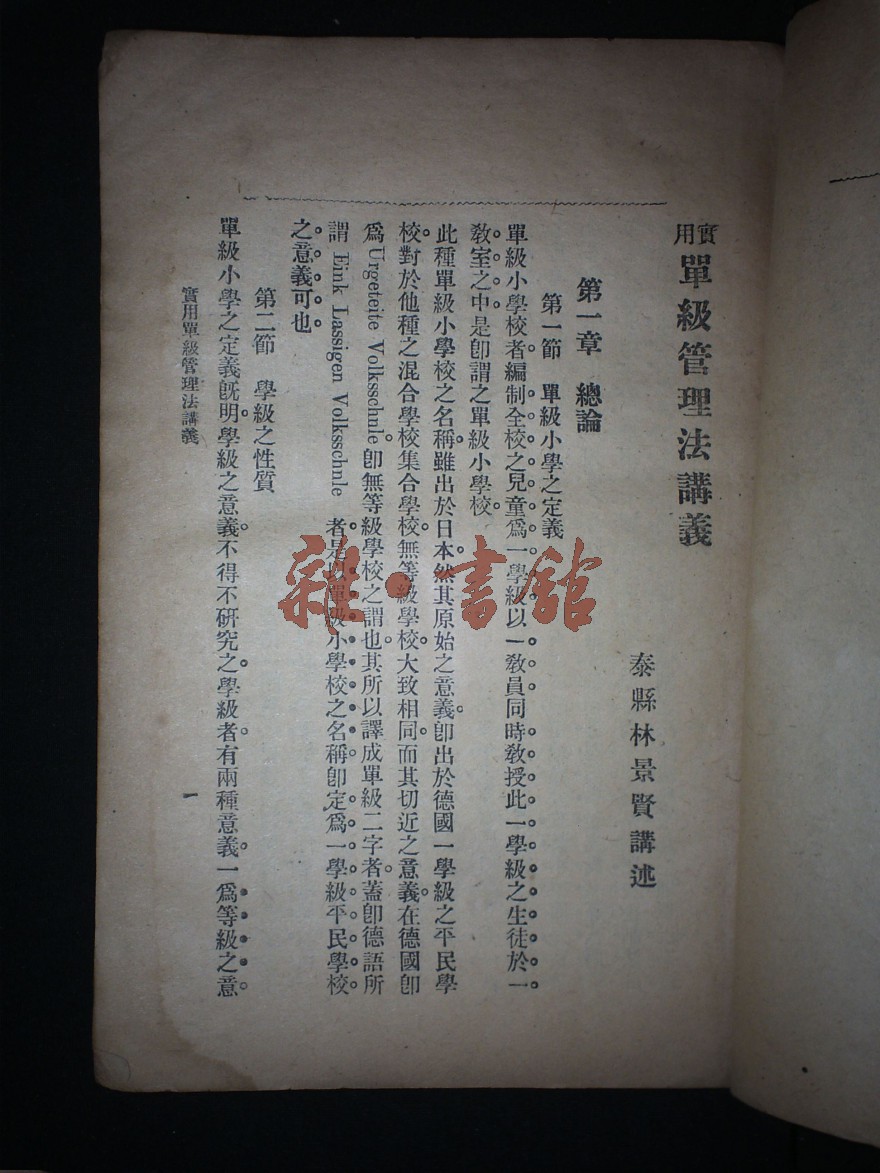 實用
單級管理法講義
泰縣林景賢講述
第一章　總論
第一節　單級小學之定義
單級小學校者編制全校之兒童爲一學級以一敎員同時敎授此一學級之生徒於一
敎室之中是卽謂之單級小學校
此種單級小學校之名稱雖出於日本然其原始之意義卽出於德國一學級之平民學
校對於他種之混合學校集合學校無等級學校大致相同而其切近之意義在德國卽
爲Urgeteite Volksschnle卽無等級學校之謂也其所以譯成單級二字者蓋卽德語所
謂 Eink Lassigen Volksschnle 者是以單級小學校之名稱卽定爲一學級平民學校
之意義可也
第二節　學級之性質
單級小學之定義旣明學級之意義不得不研究之學級者有兩種意義一爲等級之意
實用單級管理法講義
一
雜·書館